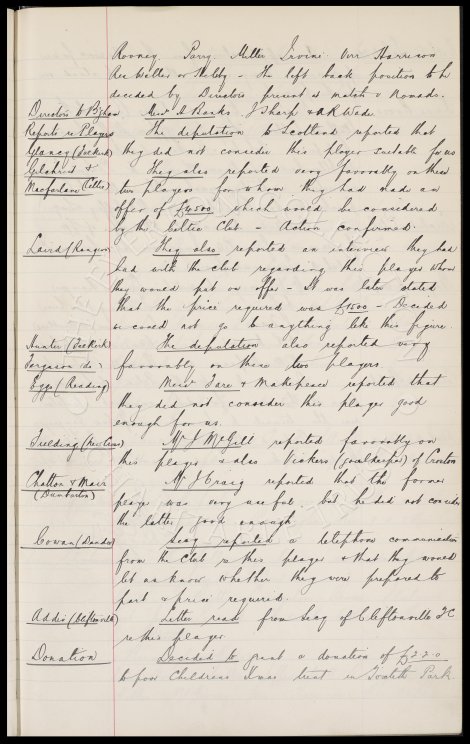 Rooney Parry Miller Irvine Virr Harrison
Reeve Weller or Kelly - The left back position to be
decided by Directors present at match v Nomads.
Directors to B'ham Messrs A Banks, J Sharp & A R Wade
Reports re Players The deputation to Scotland reported that
Glancy (Falkirk) they did not consider this player suitable for us
Gilchrist & They also reported very favorably on these
Macfarlane (Celtic) two players for whom they had made an
offer of £4500 which would be considered
by the Celtic Club - Action confirmed.
Laird (Rangers) They also reported an interview they had
had with the club regarding this player whom
they would put on offer - It was later stated
that the price required was £1500 - Decided
we could not go to anything like this figure.
Hunter (Falkirk) The deputation also reported very
Ferguson do favorably on these two players
Eggo (Reading) Messrs Sare & Makepeace reported that
they did not consider this player good
enough for us.
Fielding (New Cross) Mr J McGill reported favorably on
this player & also Vickers (goalkeeper) of Croxton
Chalton & Mair Mr J Craig reported that the former
(Dumbarton) player was very useful but he did not consider
the latter good enough.
Cowan (Dundee) Secy reported a telephone communication
from the Club re this player & that they would
let us know whether they were prepared to
part & price required.
Addis (Cliftonville) Letter read from Secy of Cliftonville FC
re this player.
Donation Decided to grant a donation of £2.2.0
to poor Childrens Xmas treat in Toxteth Park